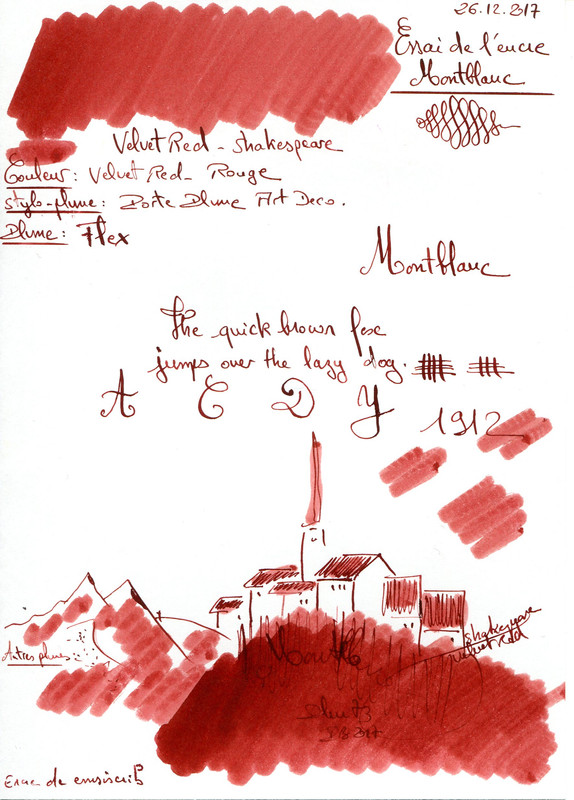 26.12.2017
Essai de l'encre
Montblanc
Velvet Red - Shakespeare
Couleur: Velvet Red - Rouge
Stylo-plume: Porte Plume Art Deco.
Plume: Flex
Montblanc
The quick brown fox
jumps over the lazy dog.
A C D Y
1912
Shakespeare
Velvet Red
Autres plumes:
Montbl